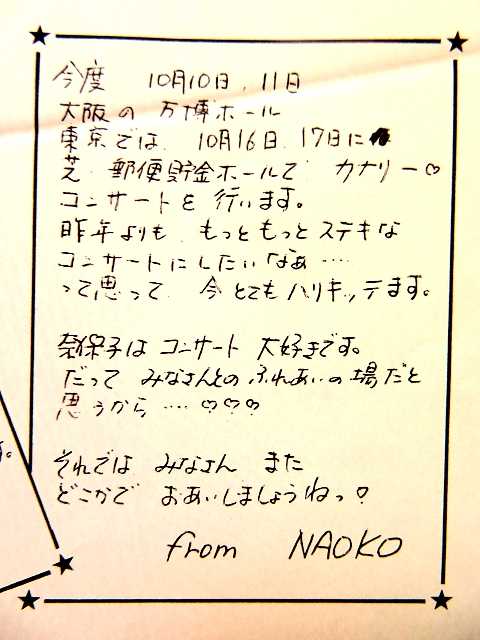 今度 10月10日、11日
大阪の 万博ホール
東京では、10月16日、17日に
芝・郵便貯金ホールで カナリー♡
コンサートを 行います。
昨年よりも、もっともっと ステキな
コンサートにしたいなぁ……
って思って、今 とてもハリキッテます。
奈保子は コンサート 大好きです。
だって みなさんとの ふれあいの場だと
思うから……♡♡♡
それでは みなさん また
どこかで おあいしましょうねっ♡
from NAOKO
す。